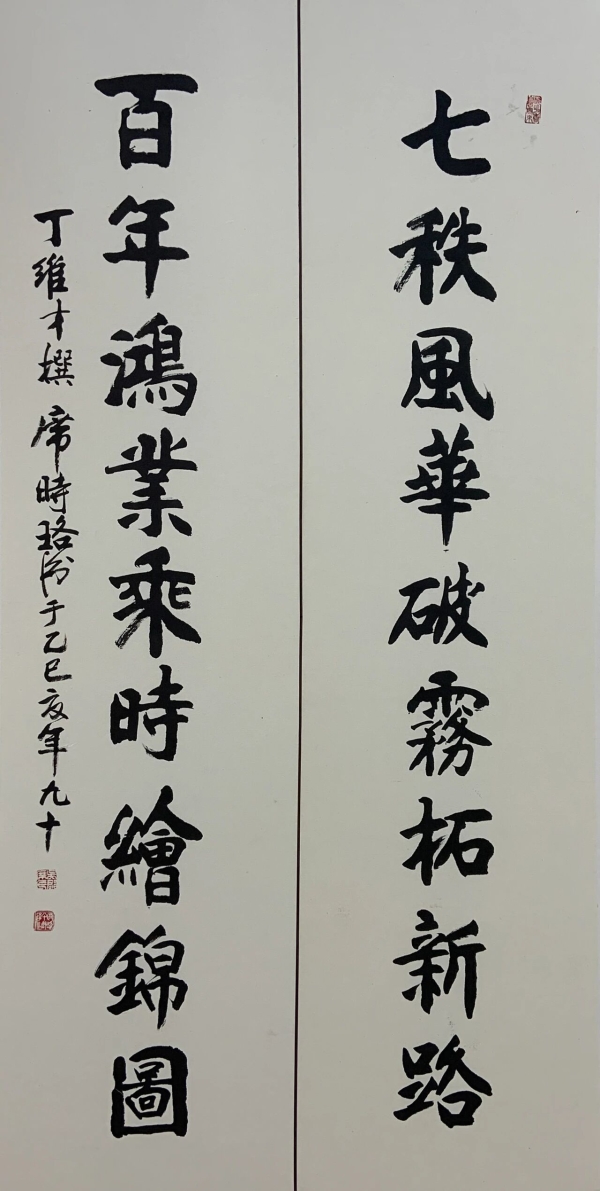 七秩風華破霧柘新路
百年鴻業乘時繪錦圖
丁維才撰 席時珞 于乙巳夏年九十